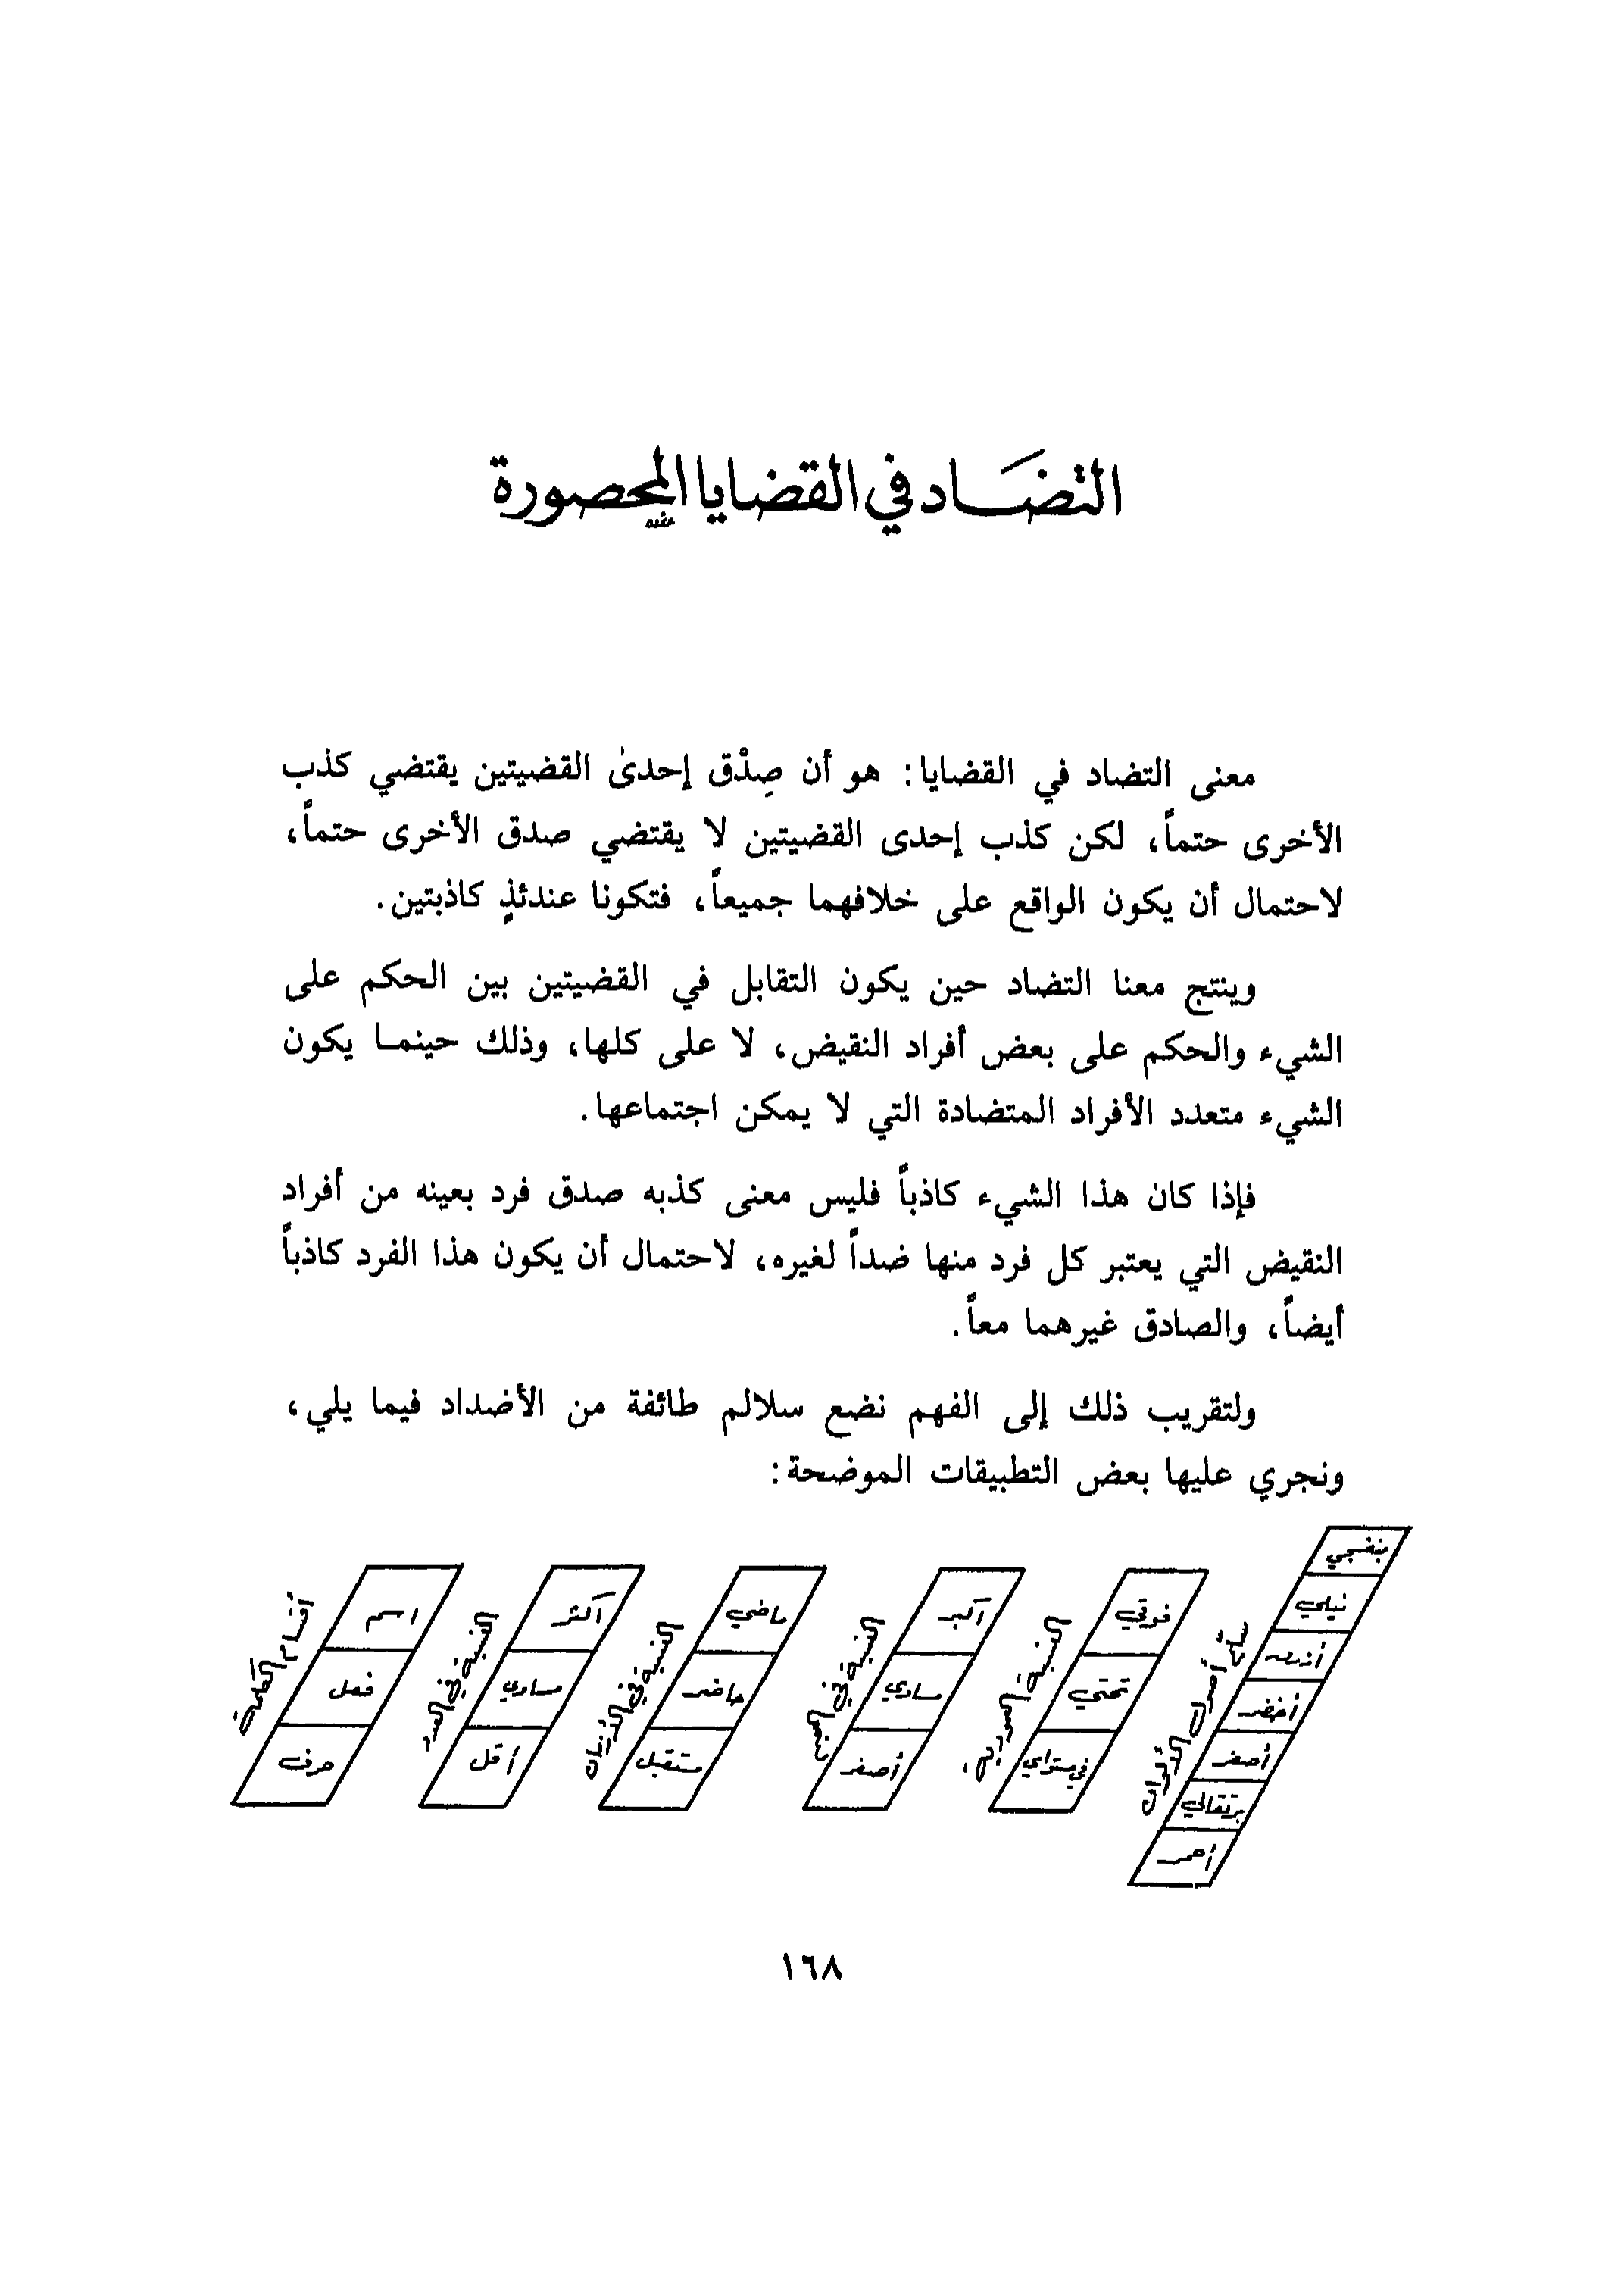 التضَاد في القضايا المحصورة
معنى التضاد في القضايا: هو أن صِدْق إحدىٰ القضيتين يقتضي كذب
الأخرى حتماً، لكن كذب إحدى القضيتين لا يقتضي صدق الأخرى حتماً،
لاحتمال أن يكون الواقع على خلافهما جميعاً، فتكونا عندئذٍ كاذبتين.
وينتج معنا التضاد حين يكون التقابل في القضيتين بين الحكم على
الشيء والحكم على بعض أفراد النقيض، لا على كلها، وذلك حينما يكون
الشيء متعدد الأفراد المتضادة التي لا يمكن اجتماعها.
فإذا كان هذا الشيء كاذباً فليس معنى كذبه صدق فرد بعينه من أفراد
النقيض التي يعتبر كل فرد منها ضداً لغيره، لاحتمال أن يكون هذا الفرد كاذباً
أيضاً، والصادق غيرهما معاً.
ولتقريب ذلك إلى الفهم نضع سلالم طائفة من الأضداد فيما يلي،
ونجري عليها بعض التطبيقات الموضحة:
سلم أصول الألوان
بنفسجي
نيلي
أزرق
أخضر
أصفر
برتقالي
أحمر
النسبة
فوقي
تحتي
في مستواي
النسبة في الحجم
أكبر
مساوي
أصغر
النسبة في الأزمان
ماضي
حاضر
مستقبل
النسبة في العدد
أكثر
مساوي
أقل
أقسام الكلمة
اسم
فعل
حرف
١٦٨